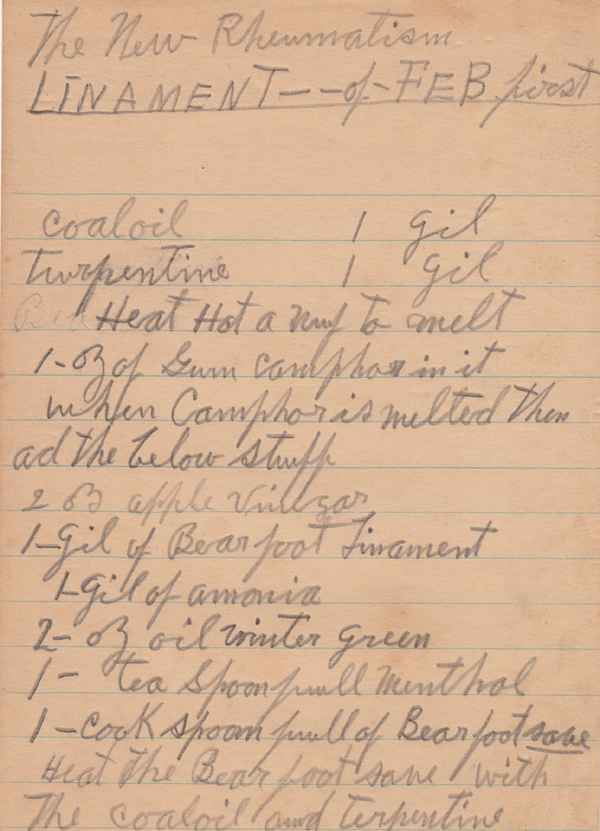 The New Rheumatism
LINAMENT--of-FEB first
coaloil 1 Gil
turpentine 1 Gil
Heat Hot a nuf to melt
1-oz of Gum camphor in it
when Camphor is melted then
ad the below stuff
2 oz apple vinegar
1-Gil of Bearfoot Linament
1-Gil of amonia
2-oz oil winter green
1- tea spoonfull menthol
1-cook spoonfull of Bearfoot save
Heat the Bearfoot save with
The coaloil and terpentine